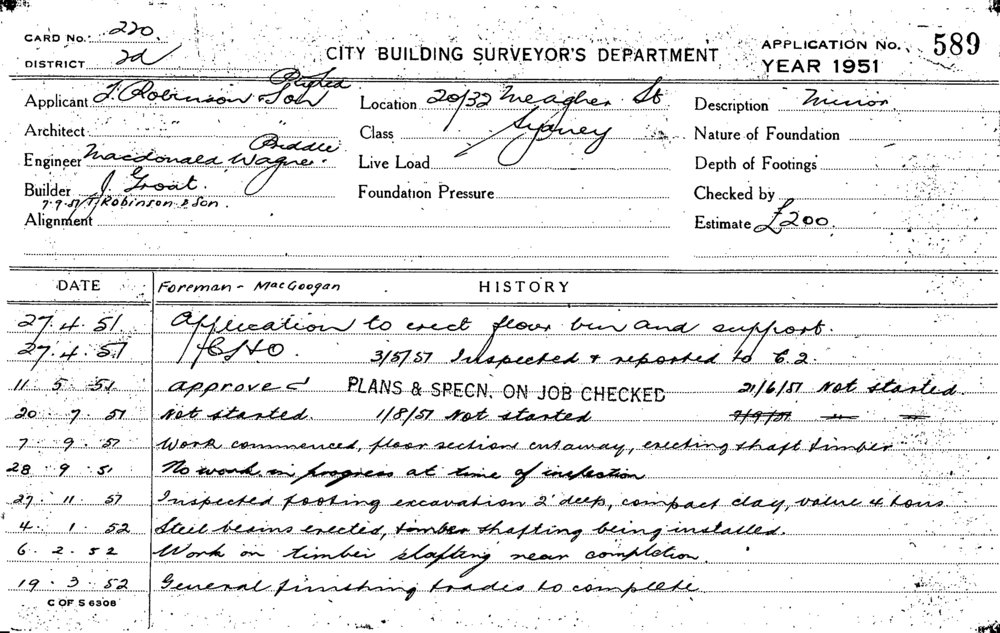 CARD No. 220.
DISTRICT 2d
CITY BUILDING SURVEYOR'S DEPARTMENT
APPLICATION No. 589
YEAR 1951
Applicant T. Robinson & Son Pty Ltd
Location 20/32 Meagher St
Sydney
Description Minor
Architect
Class
Nature of Foundation
Engineer Macdonald Wagner. Priddle
Live Load
Depth of Footings
Builder J. Groat.
7.9.51 T Robinson & Son.
Foundation Pressure
Checked by
Alignment
Estimate £200.
DATE Foreman - MacGoogan HISTORY
27.4.51 Application to erect flour bin and support.
27.4.51 3/5/51 Inspected & reported to C.2.
11 5 51 approved PLANS & SPECN. ON JOB CHECKED 21/6/51 Not started.
20 7 51 Not started. 1/8/51 Not started 7/9/51 " "
7 9 51 Work commenced, floor section cut away, erecting shaft timber
28 9 51 No work in progress at time of inspection
27 11 51 Inspected footing excavation 2' deep, compact clay, value 4 tons
4. 1. 52 Steel beams erected, timber shafting being installed.
6. 2. 52 Work on timber shafting near completion.
19. 3. 52 General finishing trades to complete
C OF S 6308